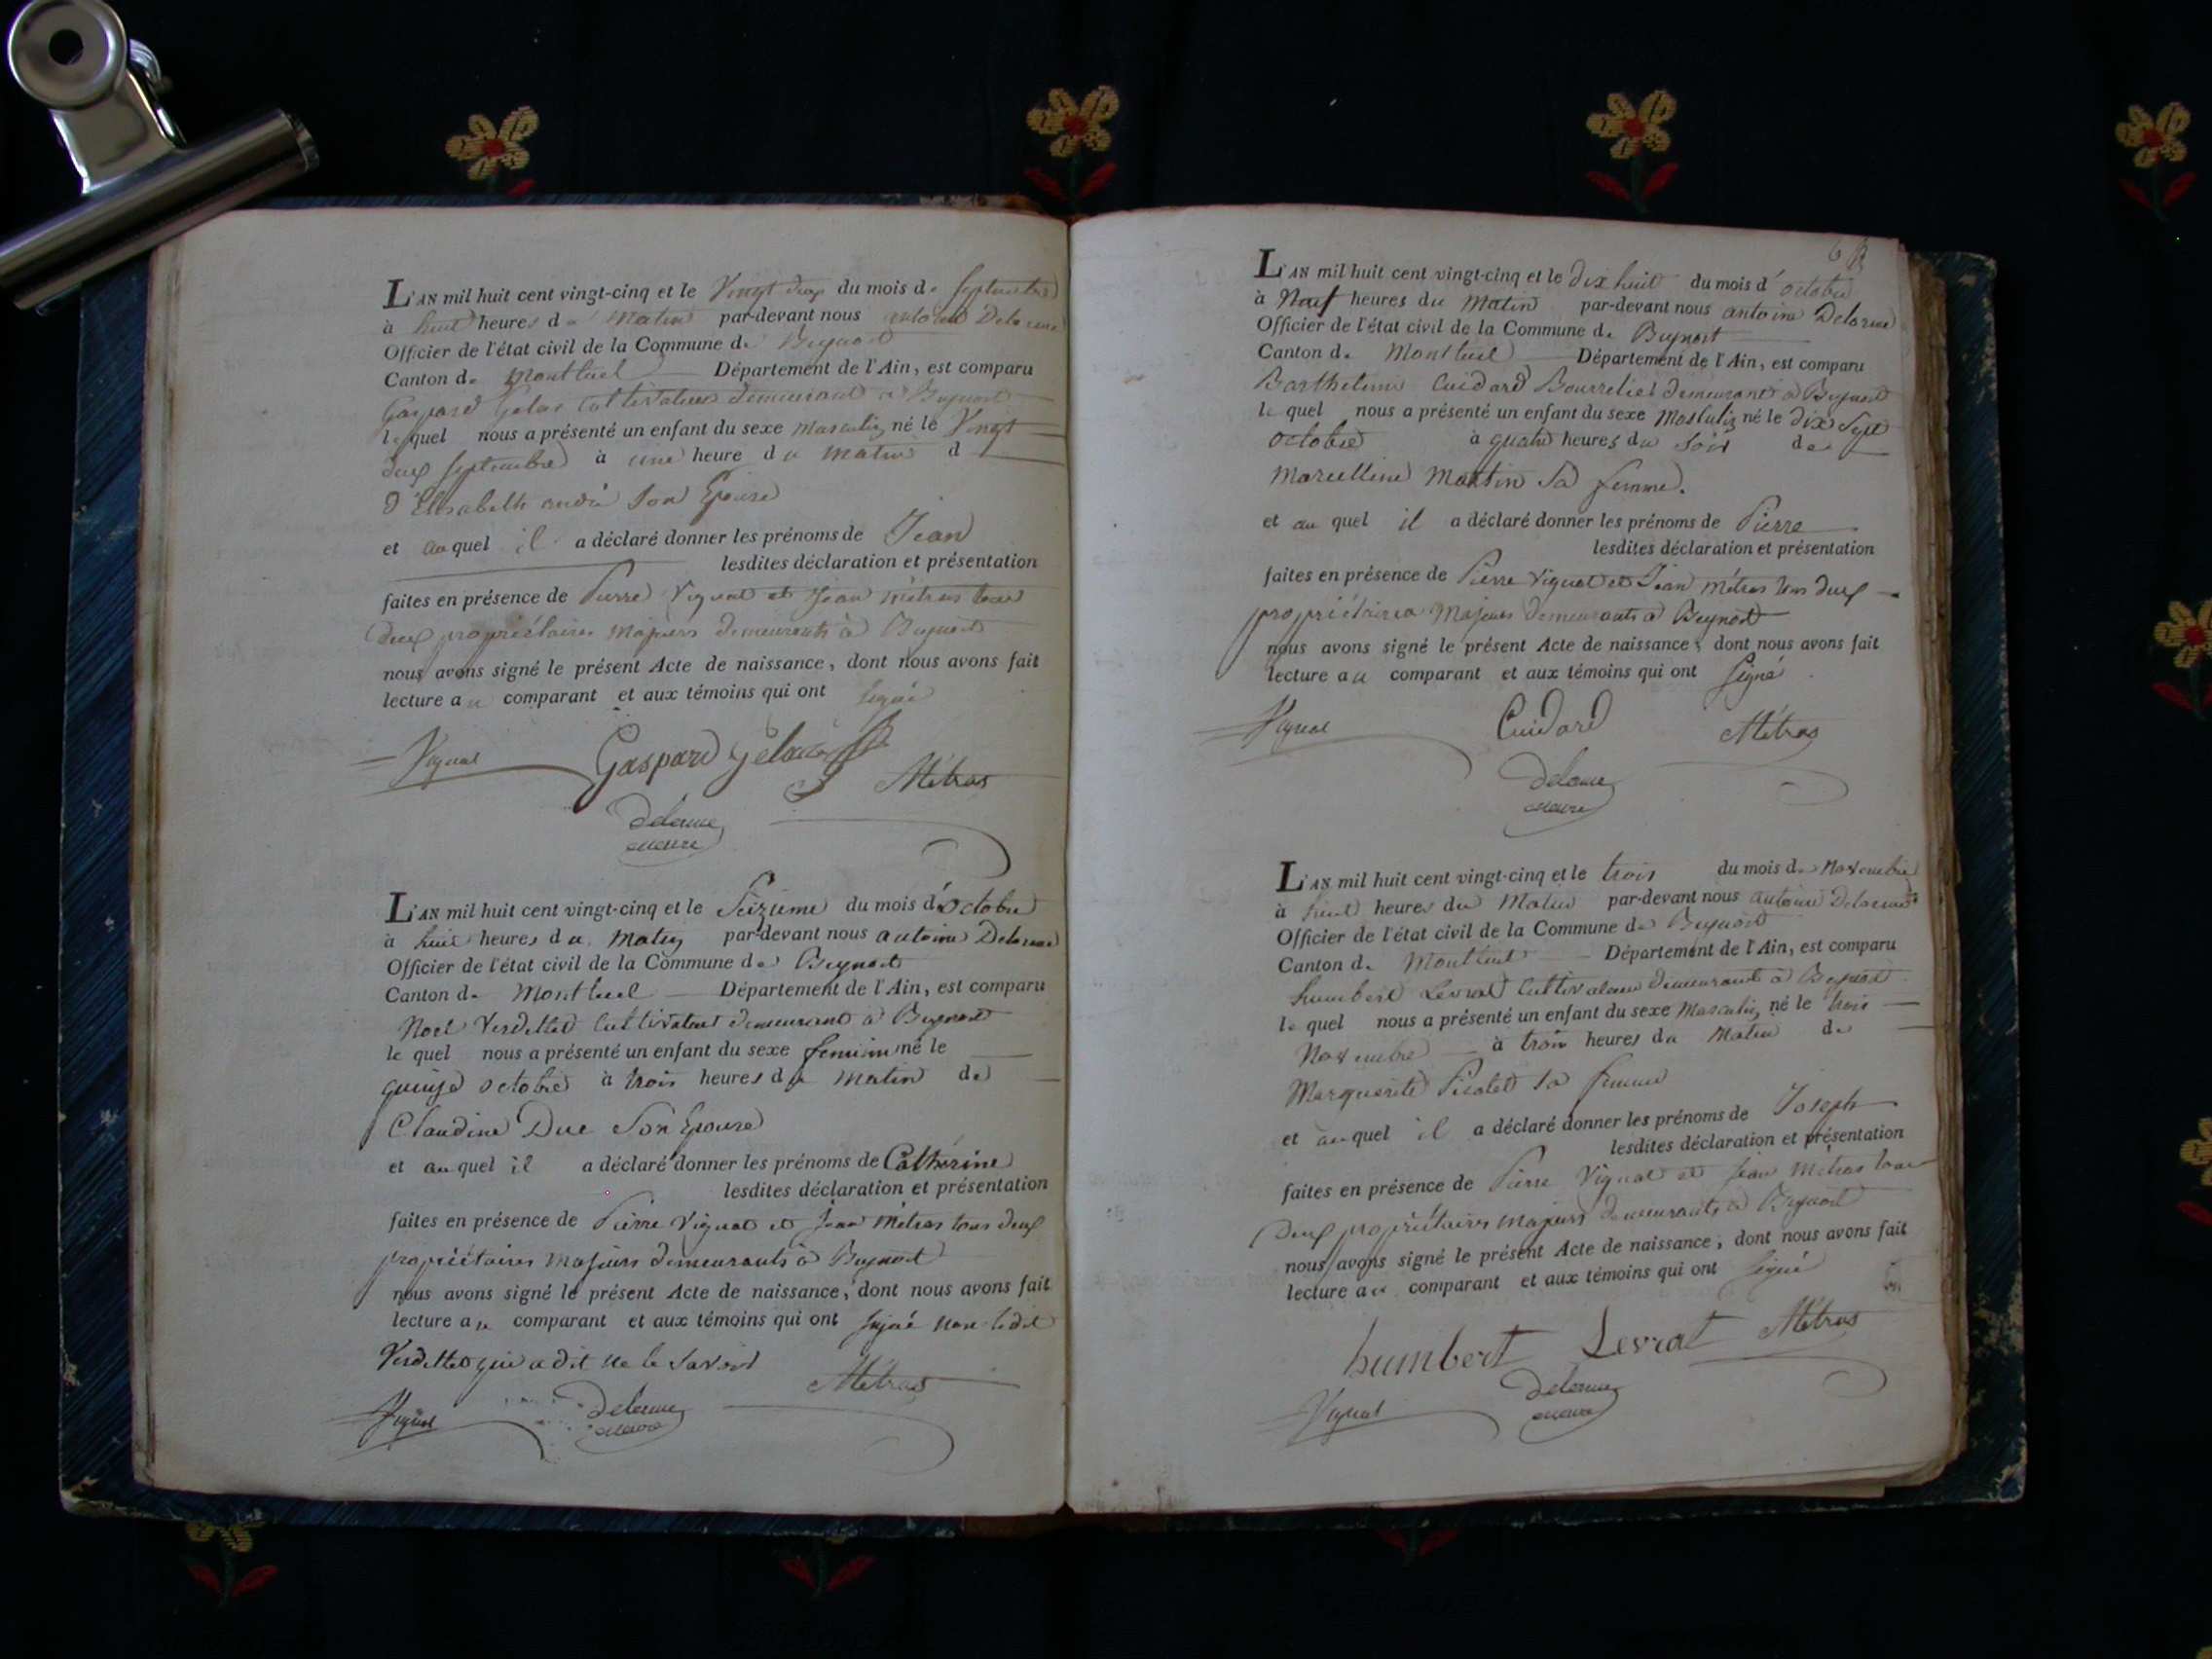 L'AN mil huit cent vingt-cinq et le Vingt deux du mois de Septembre
à huit heures du Matin par-devant nous antoine Delorme
Officier de l'état civil de la Commune de Beynost
Canton de Montluel Département de l'Ain, est comparu
Gaspard Gelas Cultivateur demeurant à Beynost
lequel nous a présenté un enfant du sexe masculin né le Vingt
deux septembre à une heure du matin d
d'Elisabeth andré Son Epouse
et auquel il a déclaré donner les prénoms de Jean
lesdites déclaration et présentation
faites en présence de Pierre Vignat et Jean métras tous
deux propriétaires Majeurs demeurants à Beynost
nous avons signé le présent Acte de naissance, dont nous avons fait
lecture au comparant et aux témoins qui ont signé
Vignat Gaspard Gelas Métras
Delorme
maire
L'AN mil huit cent vingt-cinq et le Seizieme du mois d'octobre
à huit heures du Matin par-devant nous antoine Delorme
Officier de l'état civil de la Commune de Beynost
Canton de Montluel Département de l'Ain, est comparu
Noel Verdellet Cultivateur demeurant à Beynost
lequel nous a présenté un enfant du sexe feminin né le
quinze octobre à trois heures du matin de
Claudine Duc Son Epouse
et auquel il a déclaré donner les prénoms de Catherine
lesdites déclaration et présentation
faites en présence de Pierre Vignat et Jean Métras tous deux
propriétaires Majeurs demeurants à Beynost
nous avons signé le présent Acte de naissance, dont nous avons fait
lecture au comparant et aux témoins qui ont signé non ledit
Verdellet qui a dit ne le Savoir
Métras
Vignat Delorme
maire
L'AN mil huit cent vingt-cinq et le dix huit du mois d'octobre
à Neuf heures du Matin par-devant nous antoine Delorme
Officier de l'état civil de la Commune de Beynost
Canton de Montluel Département de l'Ain, est comparu
Barthelemi Cuidard Bourrelier demeurant à Beynost
lequel nous a présenté un enfant du sexe Masculin né le dix Sept
octobre à quatre heures du Soir de
Marcelline Martin Sa femme.
et auquel il a déclaré donner les prénoms de Pierre
lesdites déclaration et présentation
faites en présence de Pierre Vignat et Jean métras tous deux
propriétaires Majeurs demeurants à Beynost
nous avons signé le présent Acte de naissance, dont nous avons fait
lecture au comparant et aux témoins qui ont Signé
Vignat Cuidard Métras
Delorme
maire
L'AN mil huit cent vingt-cinq et le trois du mois de Novembre
à huit heures du Matin par-devant nous antoine Delorme
Officier de l'état civil de la Commune de Beynost
Canton de Montluel Département de l'Ain, est comparu
humbert Levrat Cultivateur demeurant à Beynost
lequel nous a présenté un enfant du sexe Masculin né le trois
Novembre à trois heures du Matin de
Marguerite Picolet sa femme
et auquel il a déclaré donner les prénoms de Joseph
lesdites déclaration et présentation
faites en présence de Pierre Vignat et Jean Métras tous
deux propriétaires majeurs demeurants à Beynost
nous avons signé le présent Acte de naissance, dont nous avons fait
lecture au comparant et aux témoins qui ont signé
humbert Levrat Métras
Vignat Delorme
maire